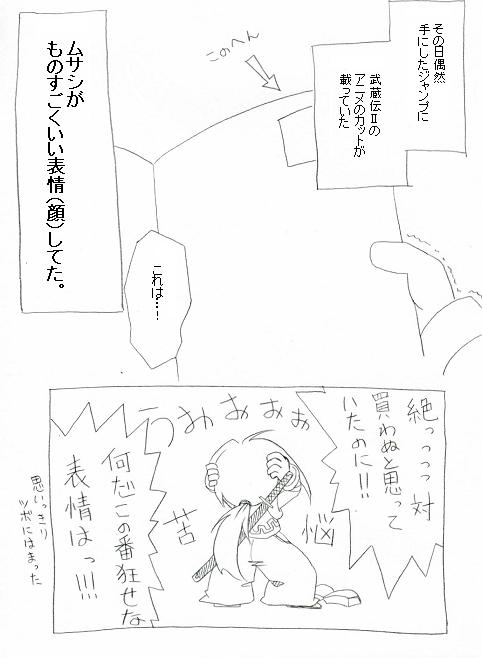 その日偶然
手にしたジャンプに
武蔵伝Ⅱの
アニメのカットが
載っていた
このへん
ムサシが
ものすごくいい表情(顔)してた。
これは…!
絶っっっっ対
買わぬと思って
いたのに!!
うおぉおぉぉ
苦
悩
何だこの番狂せな
表情はっ!!!
思いっきり
ツボにはまった